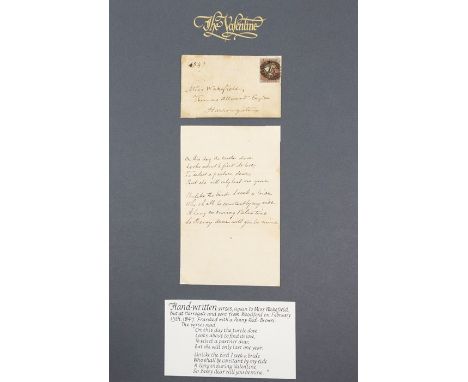 The Valentine
1847
Miss Wakefield
Thomas
Harrowgate
On this day the turtle dove
Looks about to find its love
To select a partner dear
But she will only last one year
Unlike the bird I seek a bride
Who shall be constantly by my side
A long an during Valentine
So Betsy dear will you be mine
Hand-written verses, again to Miss Wakefield,
but at Harrogate and sent from Bradford on February
13th, 1847. Franked with a Penny Red-Brown.
The verses read:
On this day the turtle dove
Looks about to find its love,
To select a partner dear,
But she will only last one year.
Unlike the bird I seek a bride
Who shall be constant by my side
A long enduring Valentine
So Betsy dear will you be mine.